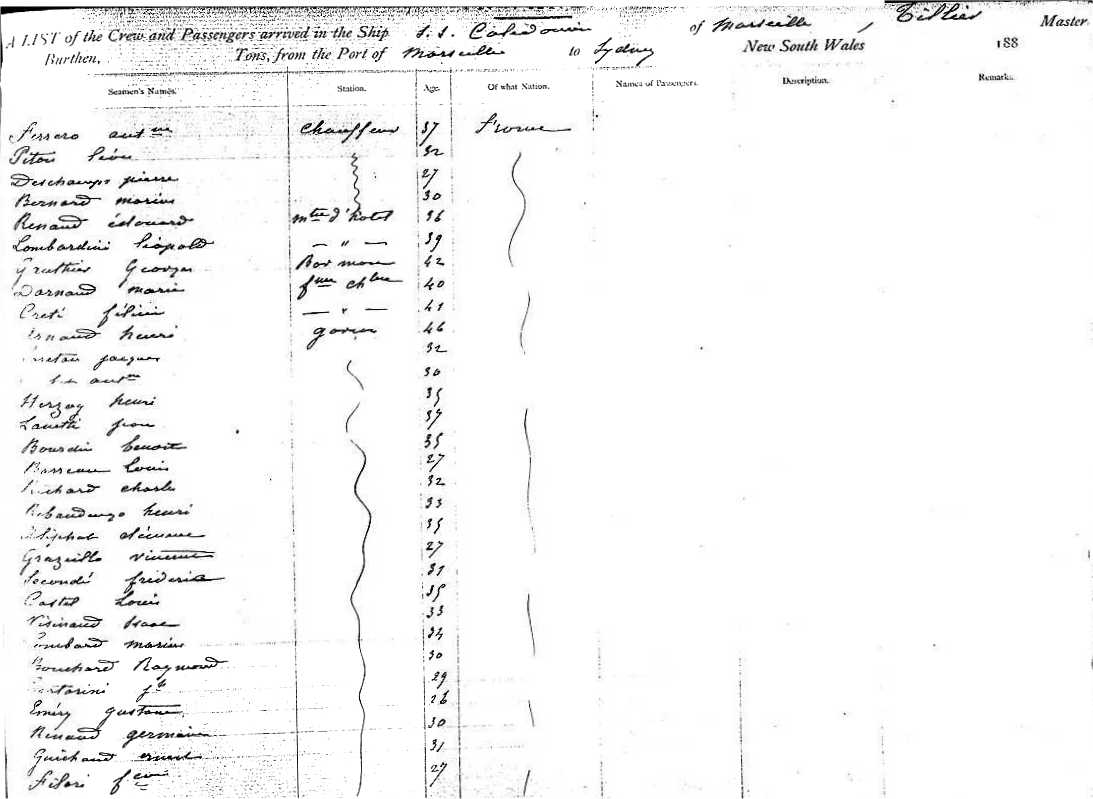 A LIST of the Crew and Passengers arrived in the Ship S.S. Calédonien of Marseille, Tillier Master
Burthen, Tons, from the Port of Marseille to Sydney New South Wales 188
Seamen's Names. Station. Age. Of what Nation. Names of Passengers. Description. Remarks.
Ferrero antne chauffeur 37 France
Piton léon 32
Deschamps pierre 27
Bernard marius 30
Renaud édouard mtre d'hotel 36
Lombardini léopold — " — 39
Gauthier Georges 42
Darnaud marie fme chbre 40
Creté félicie — " — 41
henri garçon 46
jacques 32
antne 30
Herzog henri 35
Lanetti jean 37
Bourdin benoit 35
Louis 27
Richard charles 32
Rebaudengo henri 33
35
Graziello vincent 27
Secondé frédéric 31
Castel Louis 35
Visinaud Isaac 33
Lombard marius 34
Bouchard Raymond 30
29
Eméry gustave 26
Renaud germain 30
Guichaud ernest 31
Filori fçois 27